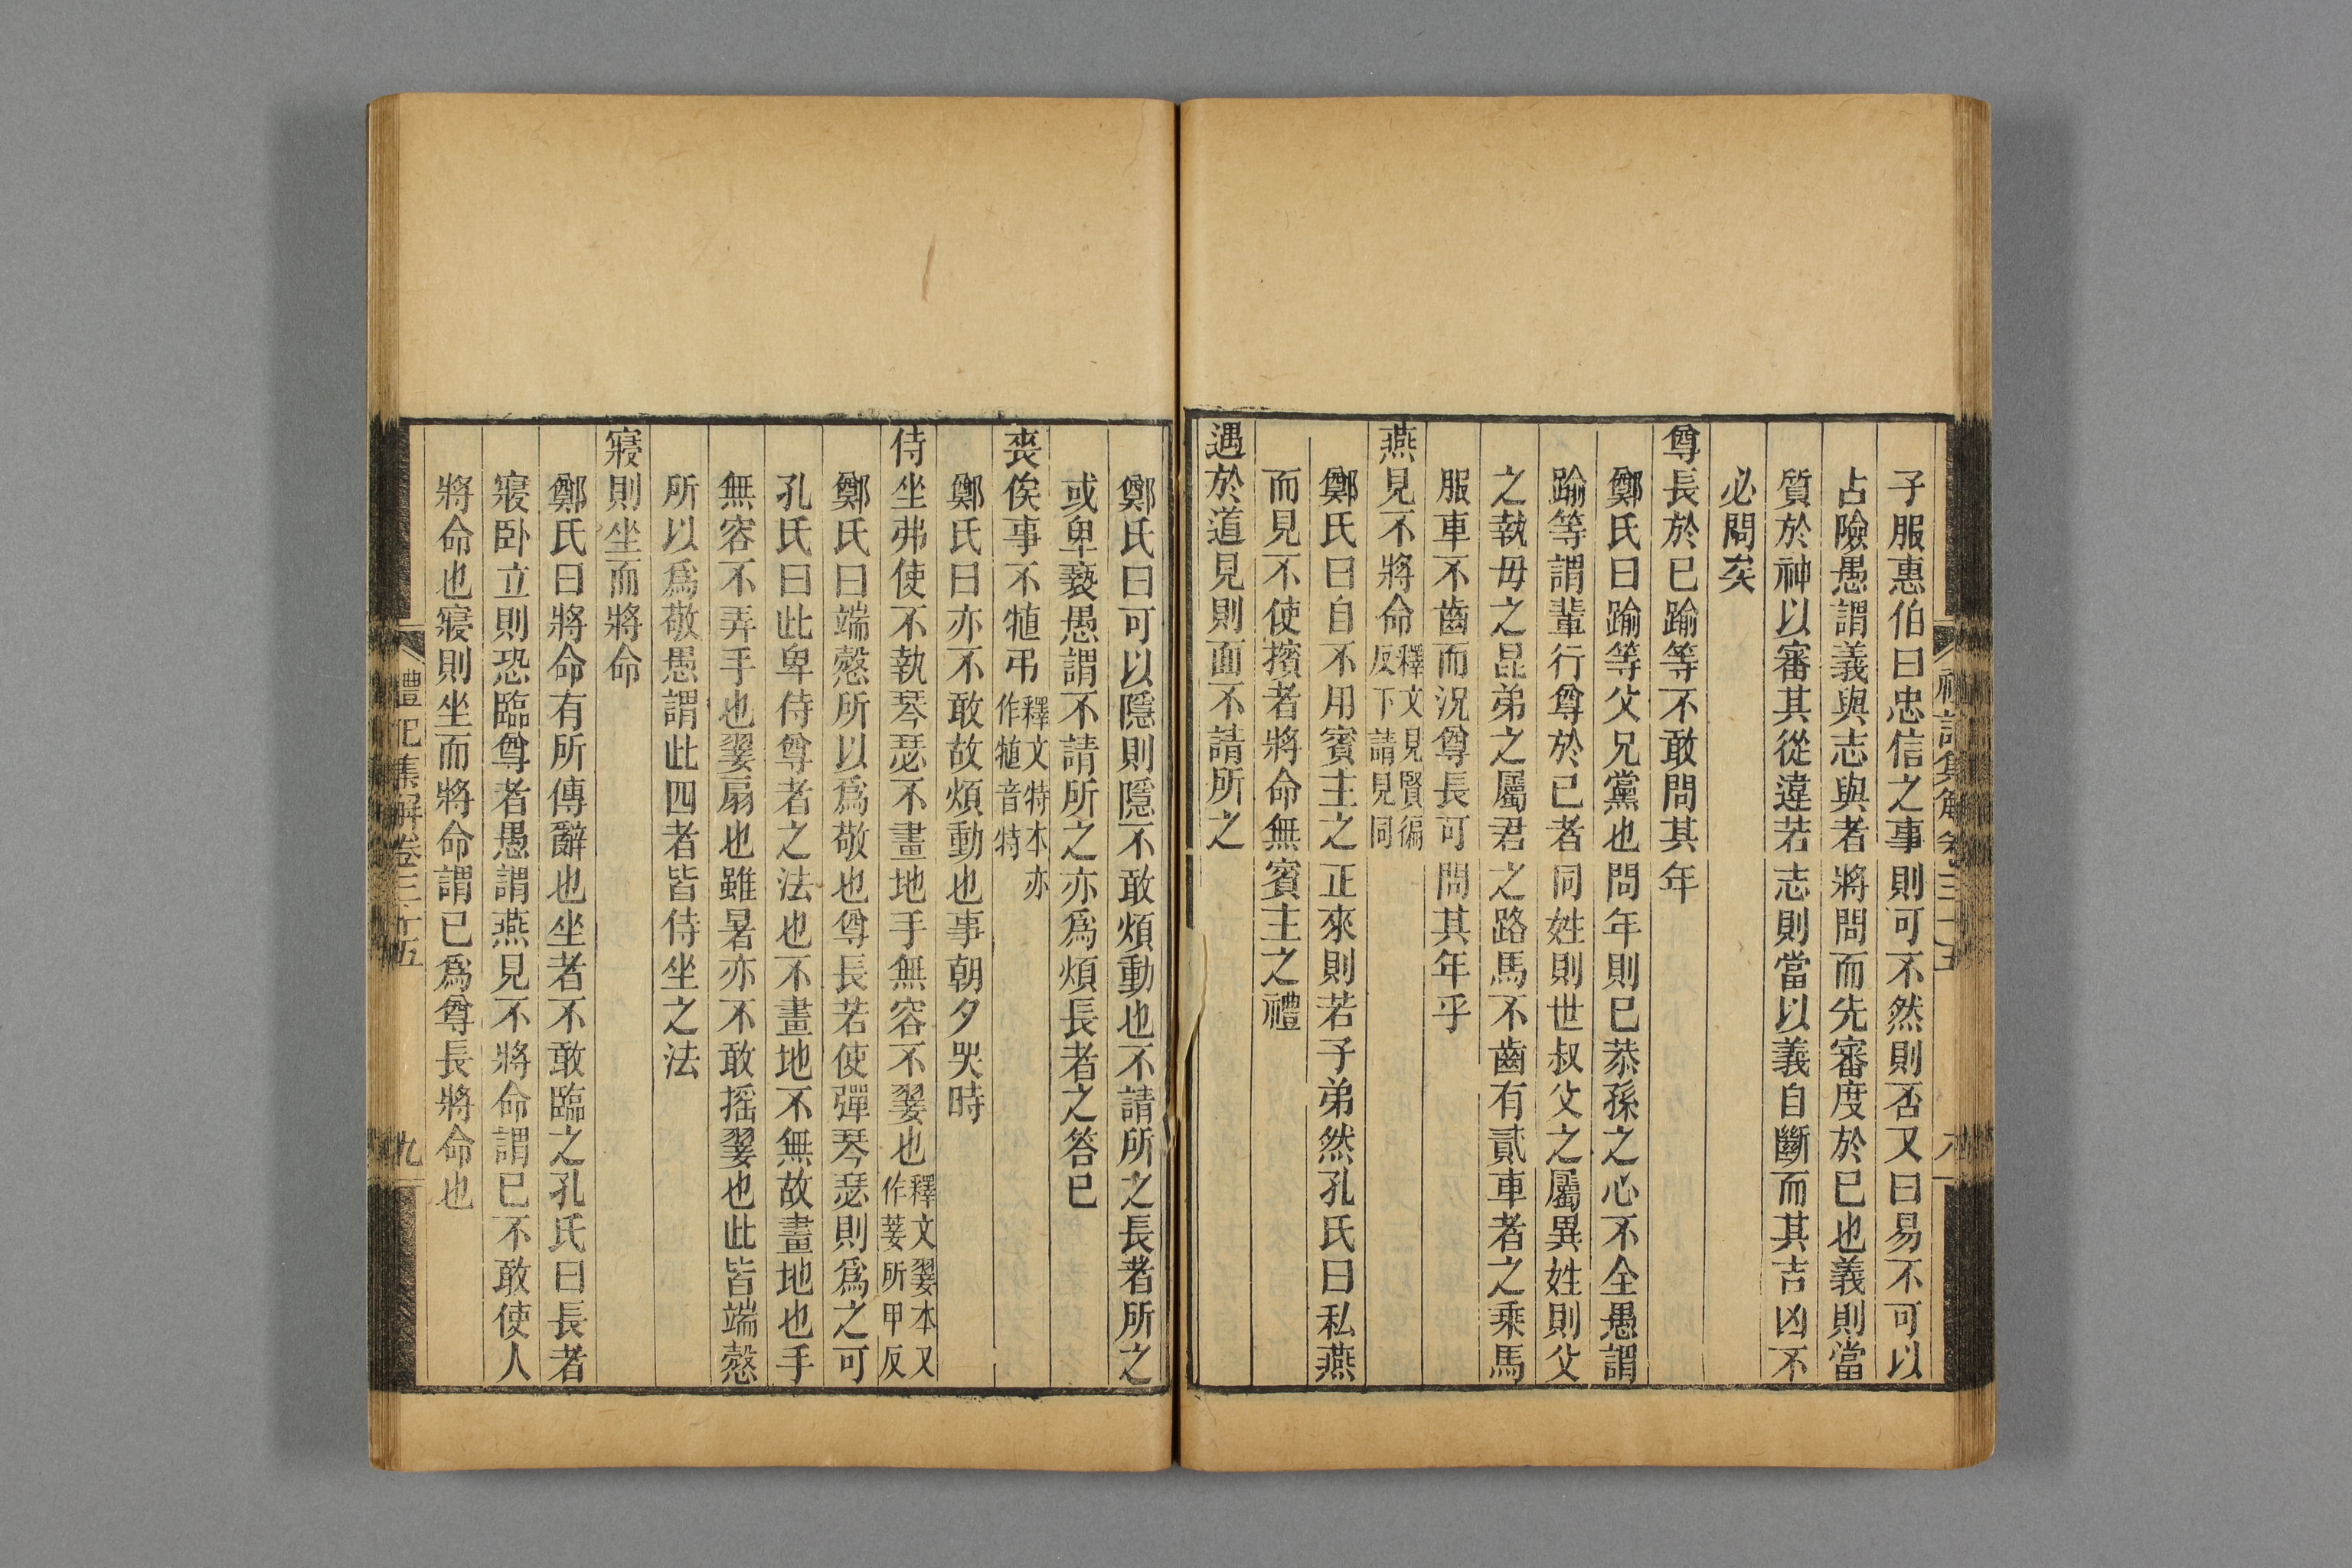 子服惠伯曰忠信之事則可不然則否又曰易不可以
占險愚謂義與志與者將問而先審度於已也義則當
質於神以審其從違若志則當以義自斷而其吉凶不
必問矣
尊長於已踰等不敢問其年
鄭氏曰踰等父兄黨也問年則已恭孫之心不全愚謂
踰等謂輩行尊於已者同姓則世叔父之屬異姓則父
之執毋之昆弟之屬君之路馬不齒有貳車者之乘馬
服車不齒而況尊長可問其年乎
燕見不將命釋文見賢徧反下請見同
鄭氏曰自不用賓主之正來則若子弟然孔氏曰私燕
而見不使擯者將命無賓主之禮
遇於道見則面不請所之
鄭氏曰可以隱則隱不敢煩動也不請所之長者所之
或卑褻愚謂不請所之亦爲煩長者之答已
喪俟事不犆弔釋文特本亦作犆音特
鄭氏曰亦不敢故煩動也事朝夕哭時
侍坐弗使不執琴瑟不畫地手無容不翣也釋文翣本又作萐所甲反
鄭氏曰端慤所以爲敬也尊長若使彈琴瑟則爲之可
孔氏曰此卑侍尊者之法也不畫地不無故畫地也手
無容不弄手也翣扇也雖暑亦不敢摇翣也此皆端慤
所以爲敬愚謂此四者皆侍坐之法
寢則坐而將命
鄭氏曰將命有所傳辭也坐者不敢臨之孔氏曰長者
寢卧立則恐臨尊者愚謂燕見不將命謂已不敢使人
將命也寢則坐而將命謂已爲尊長將命也
禮記集解卷三十五
九